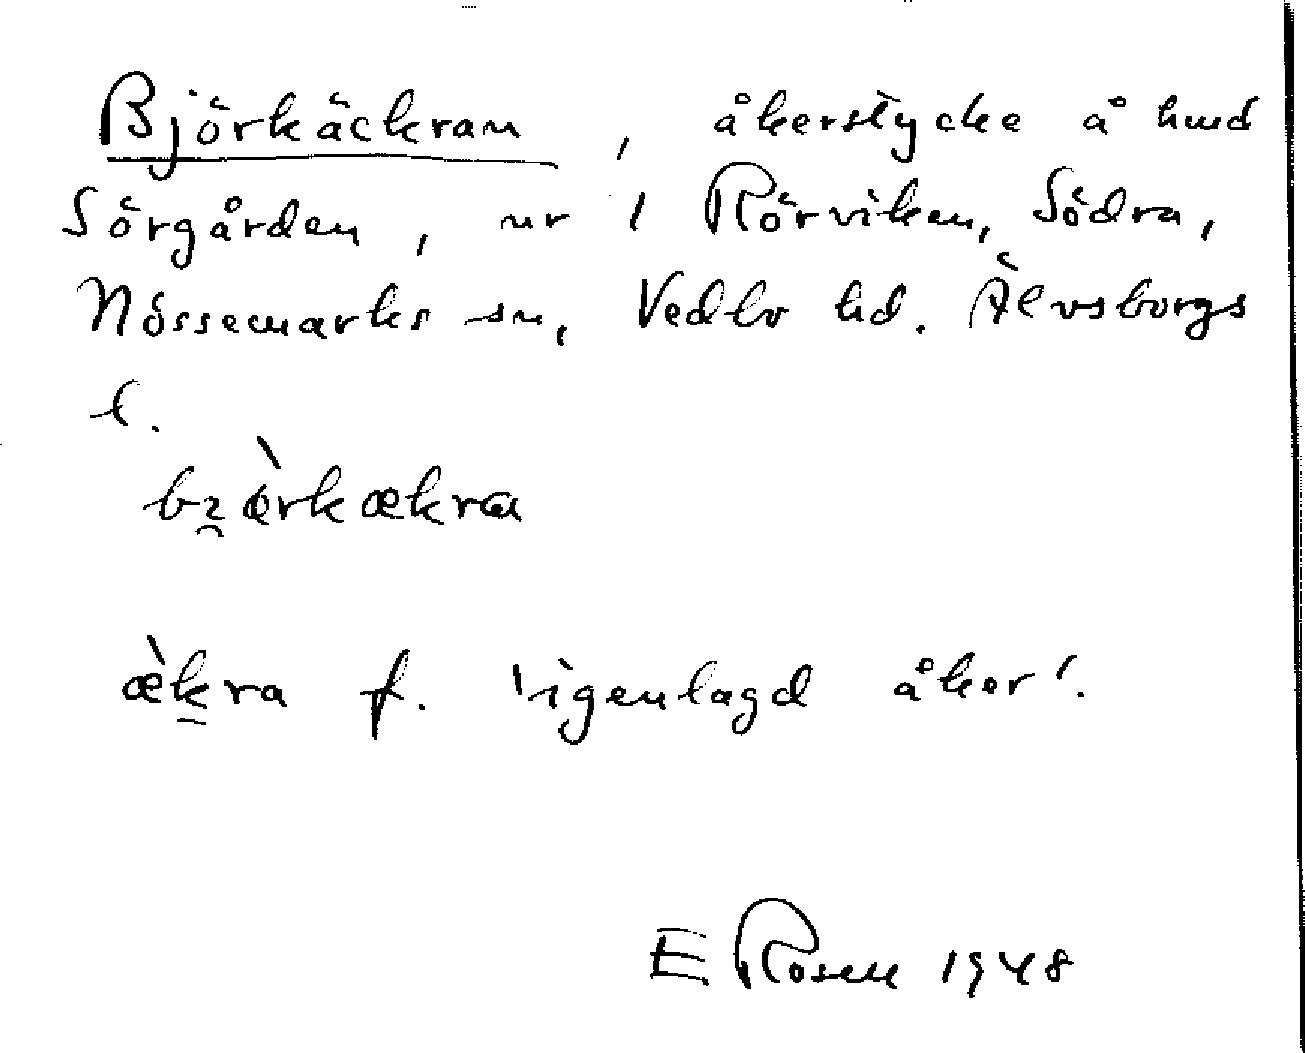 Björkäckran, åkerstycke å hmd
Sörgården, nr 1 Rörviken, Södra,
Nössemarks sn, Vedbo hd. Älvsborgs
l.
bɀæ̀rkækra
æ̀k̠ra f. 'igenlagd åker'.
E Rosell 1948